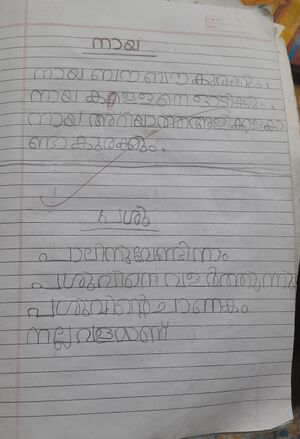 നായ
നായ ബൗ ബൗ കുരക്കും.
നായ കള്ളനെ ഓടിക്കും.
നായ അറിയാത്ത ആളുകളെക
ണ്ടാ കുരക്കും.
പശു
പാലിനുവേണ്ടിനാം
പശുവിനെ വളർത്തുന്നു
പശുവിന്റെ ചാണകം
നല്ല വളമാണ്